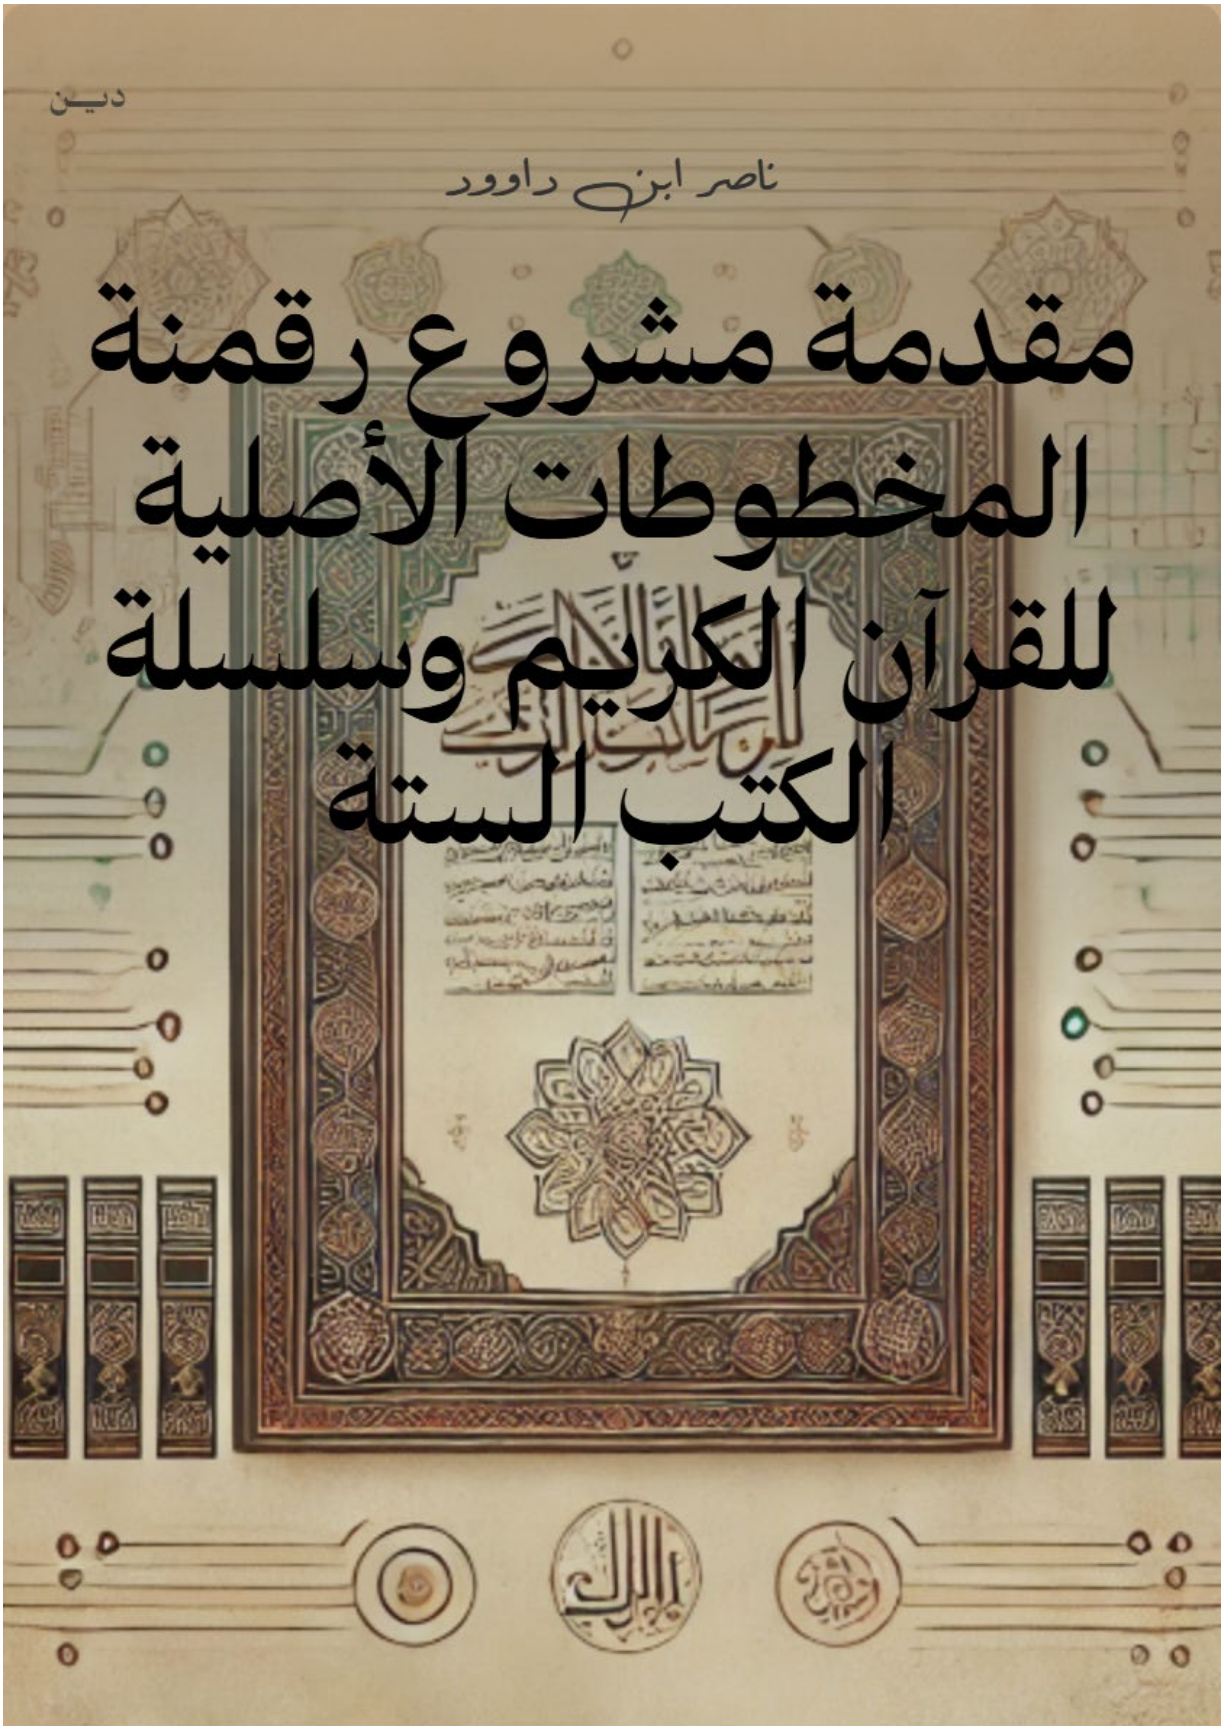 ديـن
ناصر ابن داوود
مقدمة مشروع رقمنة
المخطوطات الأصلية
للقرآن الكريم وسلسلة
الكتب الستة